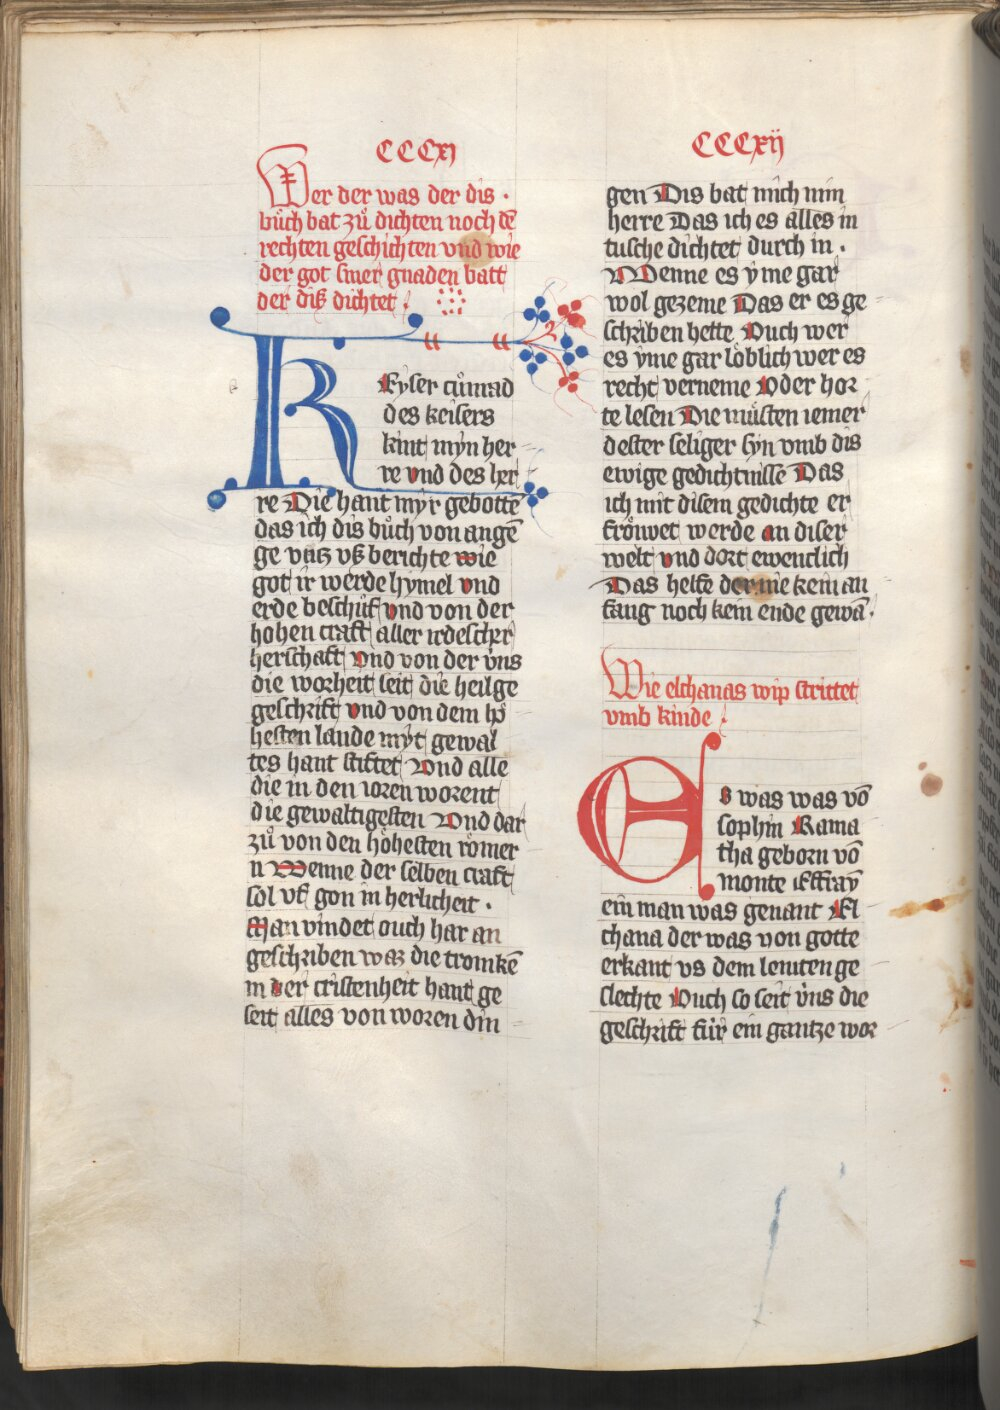 CCCxj
Wer der was der dis ·
bůch bat zů dichten noch dē
rechten geschichten vnd wie
der got siner gnaden batt
der diß dichtet
Keyser cůnrad
des keisers
kint myn her
re vnd des her
re Die hant myr gebotte
das ich dis bůch von angē
ge vntz vß berichte wie
got ir werde hymel vnd
erde beschůf vnd von der
hohen craft aller irdescher
herschaft vnd von der vns
die worheit seit die heilge
geschrift vnd von dem hő
hesten lande myt gewal
tes hant stiftet Vnd alle
die in den ioren worent
die gewaltigesten Vnd dar
zů von den höhesten römer
n Wenne der selben craft
sol vf gon in herlicheit ·
Man vindet ouch har an
geschriben waz die cronikē
in der cristenheit hant ge
seit alles von woren din
CCCxij
gen Dis bat mich min
herre Das ich es alles in
tusche dichtet durch in ·
Wenne es yme gar
wol gezeme Das er es ge
schriben hette Ouch wer
es yme gar löblich wer es
recht verneme Oder hor
te lesen Die műsten iemer
dester seliger syn vmb dis
ewige gedichtnisse Das
ich mit disem gedichte er
fröwet werde an diser
welt vnd dort ewenclich
Das helfe der nie kein an
fang noch kein ende gewā ·
Wie elchanas wip strittet
vmb kinde
Es was was vō
sophin Rama
tha geborn vō
monte Effray
ein man was genant El
chana der was von gotte
erkant vs dem leuiten ge
slechte Ouch so seit vns die
geschrift für ein gantze wor